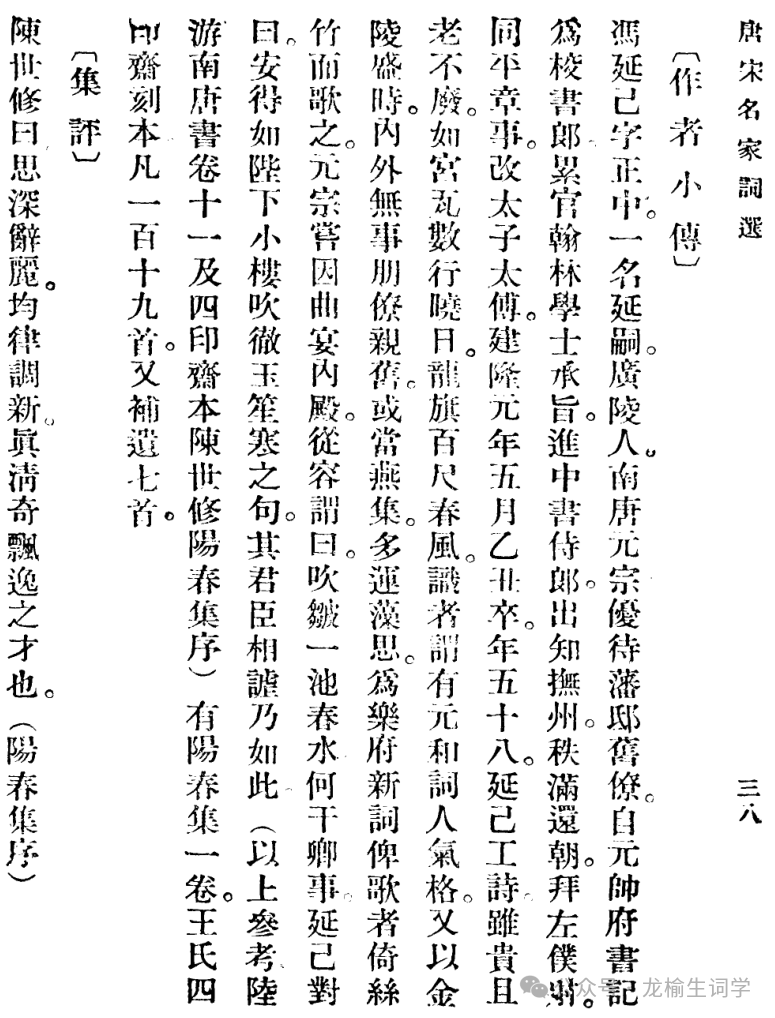 唐宋名家詞選
三八
〔作者小傳〕
馮延己字正中。一名延嗣。廣陵人。南唐元宗優待藩邸舊僚。自元帥府書記
爲校書郎累官翰林學士承旨。進中書侍郎。出知撫州。秩滿還朝。拜左僕射。
同平章事。改太子太傅。建隆元年五月乙丑卒。年五十八。延己工詩雖貴且
老不廢。如宮瓦數行曉日。龍旗百尺春風。識者謂有元和詞人氣格。又以金
陵盛時。內外無事朋僚親舊。或當燕集。多運藻思。爲樂府新詞俾歌者倚絲
竹而歌之。元宗嘗因曲宴內殿。從容謂曰。吹皺一池春水何干卿事。延己對
曰。安得如陛下小樓吹徹玉笙寒之句。其君臣相謔乃如此（以上參考陸
游南唐書卷十一及四印齋本陳世修陽春集序）有陽春集一卷。王氏四
印齋刻本凡一百十九首。又補遺七首。
〔集評〕
陳世修曰思深辭麗。均律調新。眞淸奇飄逸之才也。（陽春集序）
公众号·龙榆生词学